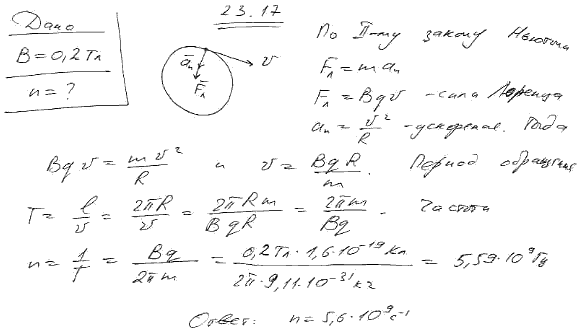 23.17
Дано
B = 0,2 Тл
n = ?
a̅ₙ
F̅ₗ
v
По II-му закону Ньютона
Fл = maₙ
Fл = Bqv - сила Лоренца
aₙ = v²/R - ускорение. Тогда
Bqv = mv²/R и v = BqR/m. Период обращения
T = l/v = 2πR/v = 2πRm/BqR = 2πm/Bq. Частота
n = 1/T = Bq/2πm = 0,2Тл·1,6·10⁻¹⁹Кл/2π·9,11·10⁻³¹кг = 5,59·10⁹Гц
Ответ: n = 5,6·10⁹с⁻¹